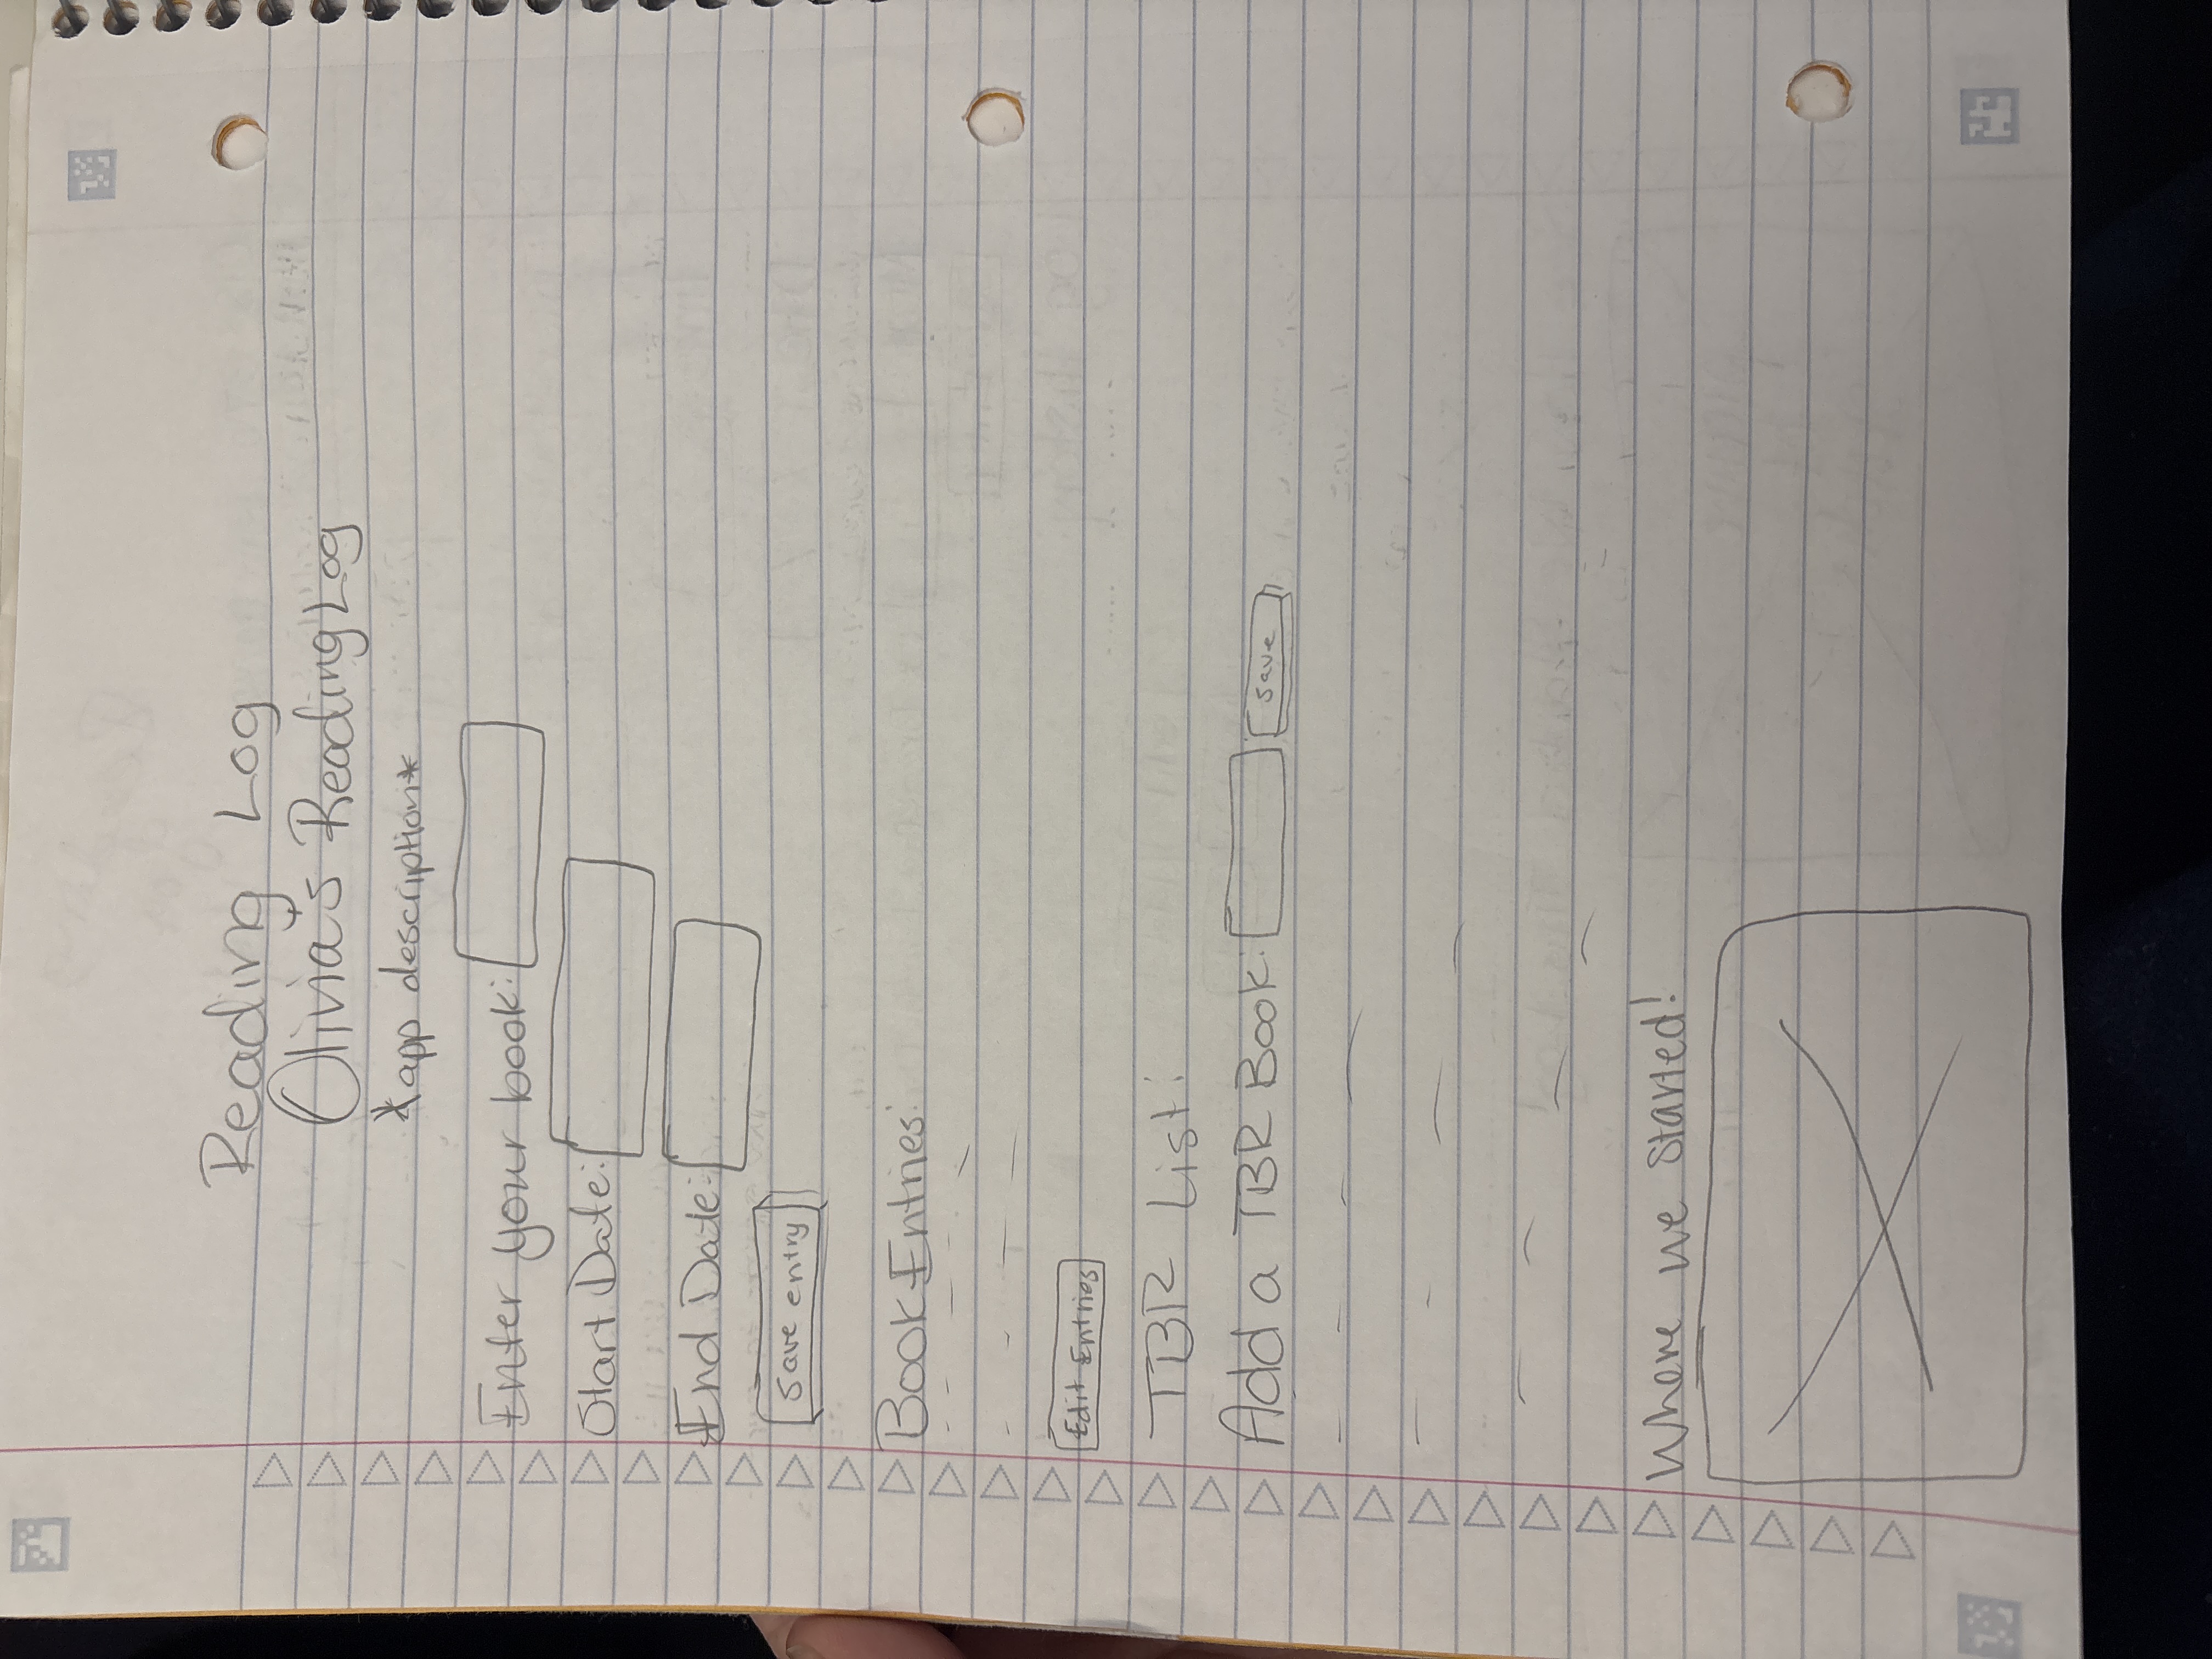 Reading Log
Olivia's Reading Log
*app description*
Enter your book:
Start Date:
End Date:
Save entry
Book Entries:
Edit Entries
TBR List:
Add a TBR Book: Save
Where we started!